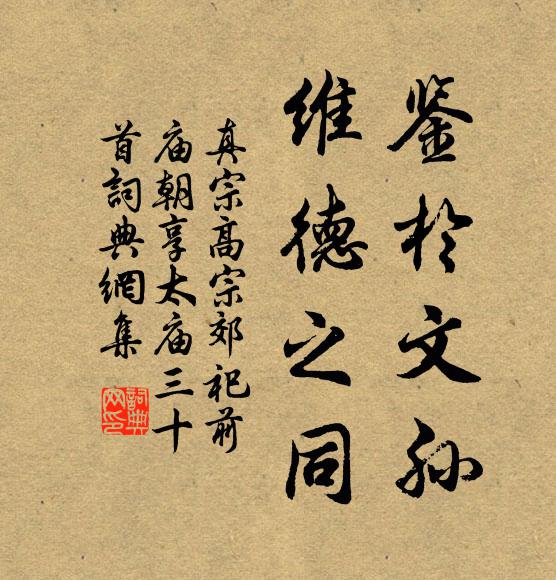 鉴於文孙
维德之同
真宗高宗郊祀前
庙朝享太庙三十
首詞典網集
詞典
网印